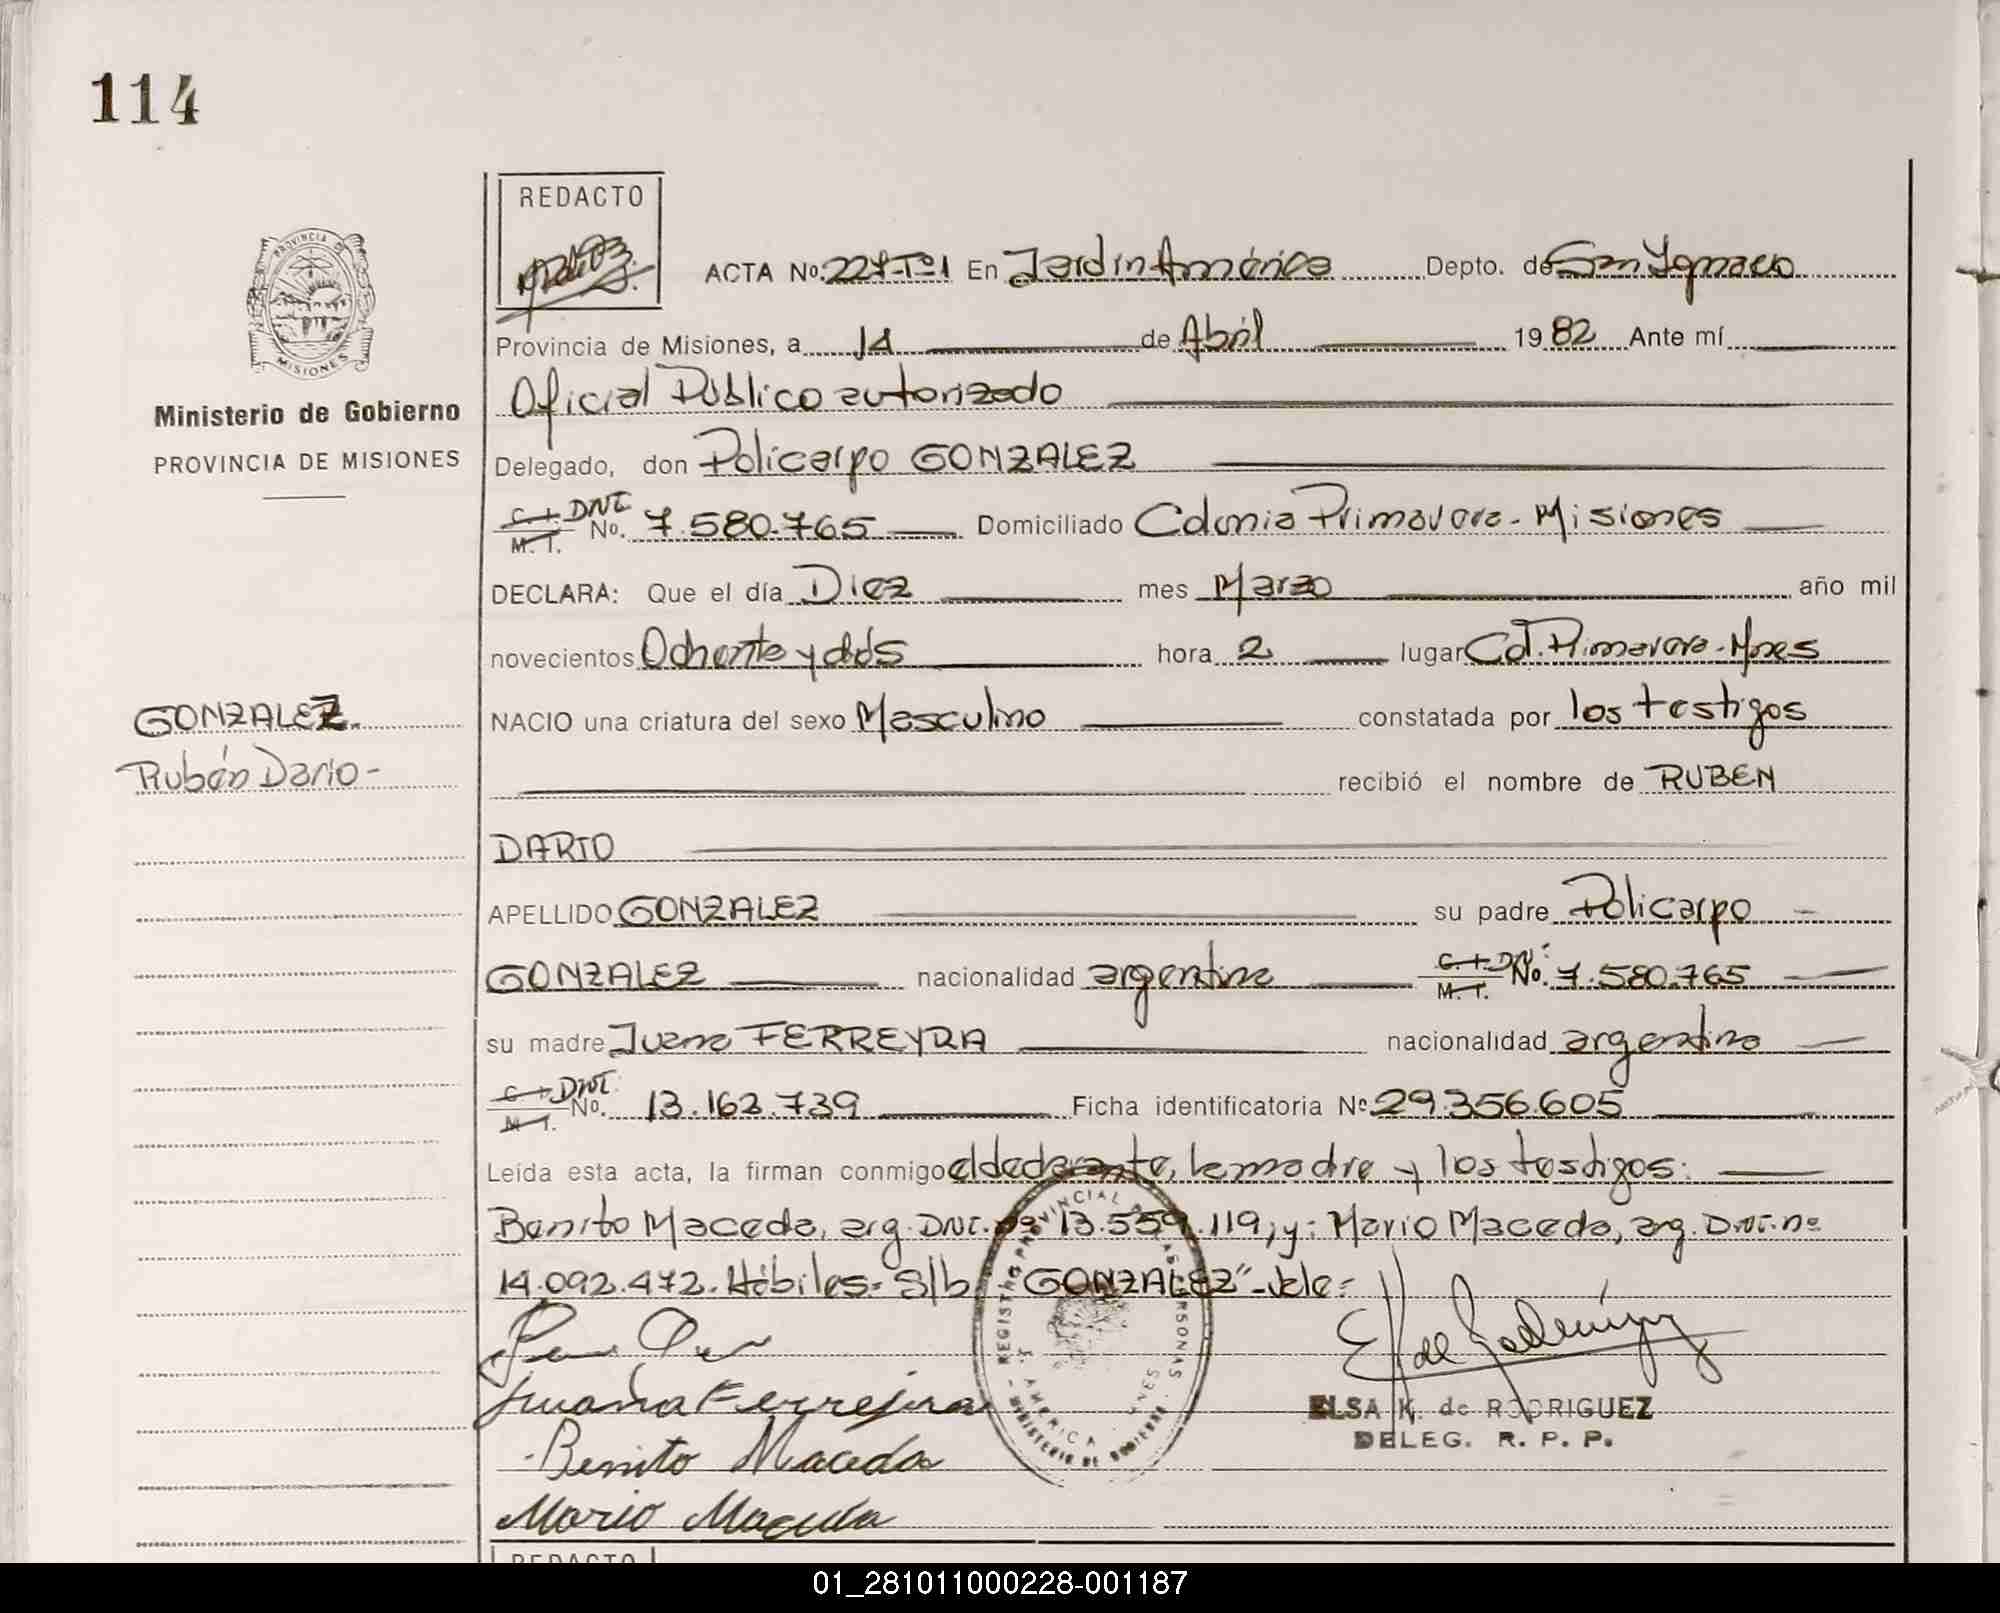 114
REDACTO
PROVINCIA DE
MISIONES
ACTA No. 227-Tº1 En Jardin América Depto. de San Ignacio
Provincia de Misiones, a 14 de Abril 1982 Ante mí
Ministerio de Gobierno
PROVINCIA DE MISIONES
Oficial Público autorizado
Delegado, don Policarpo GONZALEZ
C. I. DNI M. I. No. 7.580.765 Domiciliado Colonia Primavera - Misiones
DECLARA: Que el día Diez mes Marzo año mil
novecientos Ochenta y dós hora 2 lugar Col. Primavera - Mnes
GONZALEZ.
Rubén Dario -
NACIO una criatura del sexo Masculino constatada por los testigos
recibió el nombre de RUBEN
DARIO
APELLIDO GONZALEZ su padre Policarpo
GONZALEZ nacionalidad argentina C. I. DNI M. I. No. 7.580.765
su madre Juana FERREYRA nacionalidad argentina
C. I. DNI M. I. No. 13.162.739 Ficha identificatoria Nº 29.356.605
Leída esta acta, la firman conmigo el declarante, la madre y los testigos:
Benito Maceda, arg. DNI. nº 13.559.119, y: Mario Maceda, arg. DNI. nº
14.092.472. Hábiles - S/b "GONZALEZ" - Vale -
REGISTRO PROVINCIAL DE LAS PERSONAS
MINISTERIO DE GOBIERNO
AMERICA
Juana Ferrejra
Benito Maceda
Mario Maceda
ELSA K. de RODRIGUEZ
DELEG. R. P. P.
REDACTO
01_281011000228-001187